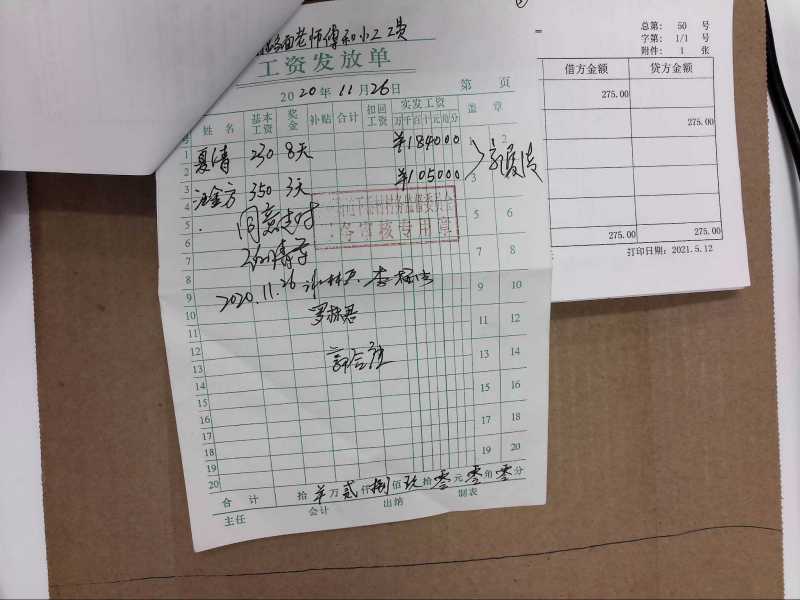 总第: 50 号
字第: 1/1 号
附件: 1 张
借方金额 贷方金额
275.00
275.00
275.00 275.00
打印日期: 2021.5.12
老师傅和小工工资
工资发放单
2020年11月26日 第 页
姓名 基本工资 奖金 补贴 合计 扣回工资 实发工资 盖章
万千百十元角分
1 夏清 230 8天 ¥184000 2
2
3 汪金方 350 3天 ¥105000 3
4
5 同意支付 5 6
6
7 7 8
8
9 2020.11.26 9 10
10
11 11 12
12
13 13 14
14
15 15 16
16
17 17 18
18
19 19 20
20
合计 拾 羊 万 贰 仟 捌 佰 玖 拾 零 元 零 角 零 分
主任 会计 出纳 制表